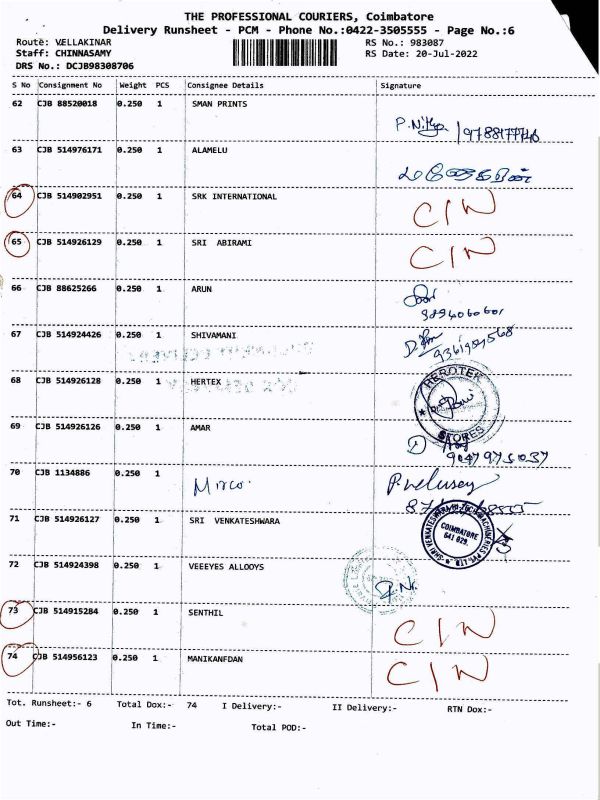 THE PROFESSIONAL COURIERS, Coimbatore
Delivery Runsheet - PCM - Phone No.:0422-3505555 - Page No.:6
Route: VELLAKINAR RS No.: 983087
Staff: CHINNASAMY RS Date: 20-Jul-2022
DRS No.: DCJB98308706
S No Consignment No Weight PCS Consignee Details Signature
62 CJB 88520018 0.250 1 SMAN PRINTS
63 CJB 514976171 0.250 1 ALAMELU
64 CJB 514902951 0.250 1 SRK INTERNATIONAL C/N
65 CJB 514926129 0.250 1 SRI ABIRAMI C/N
66 CJB 88625266 0.250 1 ARUN
67 CJB 514924426 0.250 1 SHIVAMANI
68 CJB 514926128 0.250 1 HERTEX HEROTEK STORES
69 CJB 514926126 0.250 1 AMAR
70 CJB 1134886 0.250 1 P.velusamy
71 CJB 514926127 0.250 1 SRI VENKATESHWARA COIMBATORE 641 029.
72 CJB 514924398 0.250 1 VEEEYES ALLOOYS
73 CJB 514915284 0.250 1 SENTHIL C/N
74 CJB 514956123 0.250 1 MANIKANFDAN C/N
Tot. Runsheet:- 6 Total Dox:- 74 I Delivery:- II Delivery:- RTN Dox:-
Out Time:- In Time:- Total POD:-